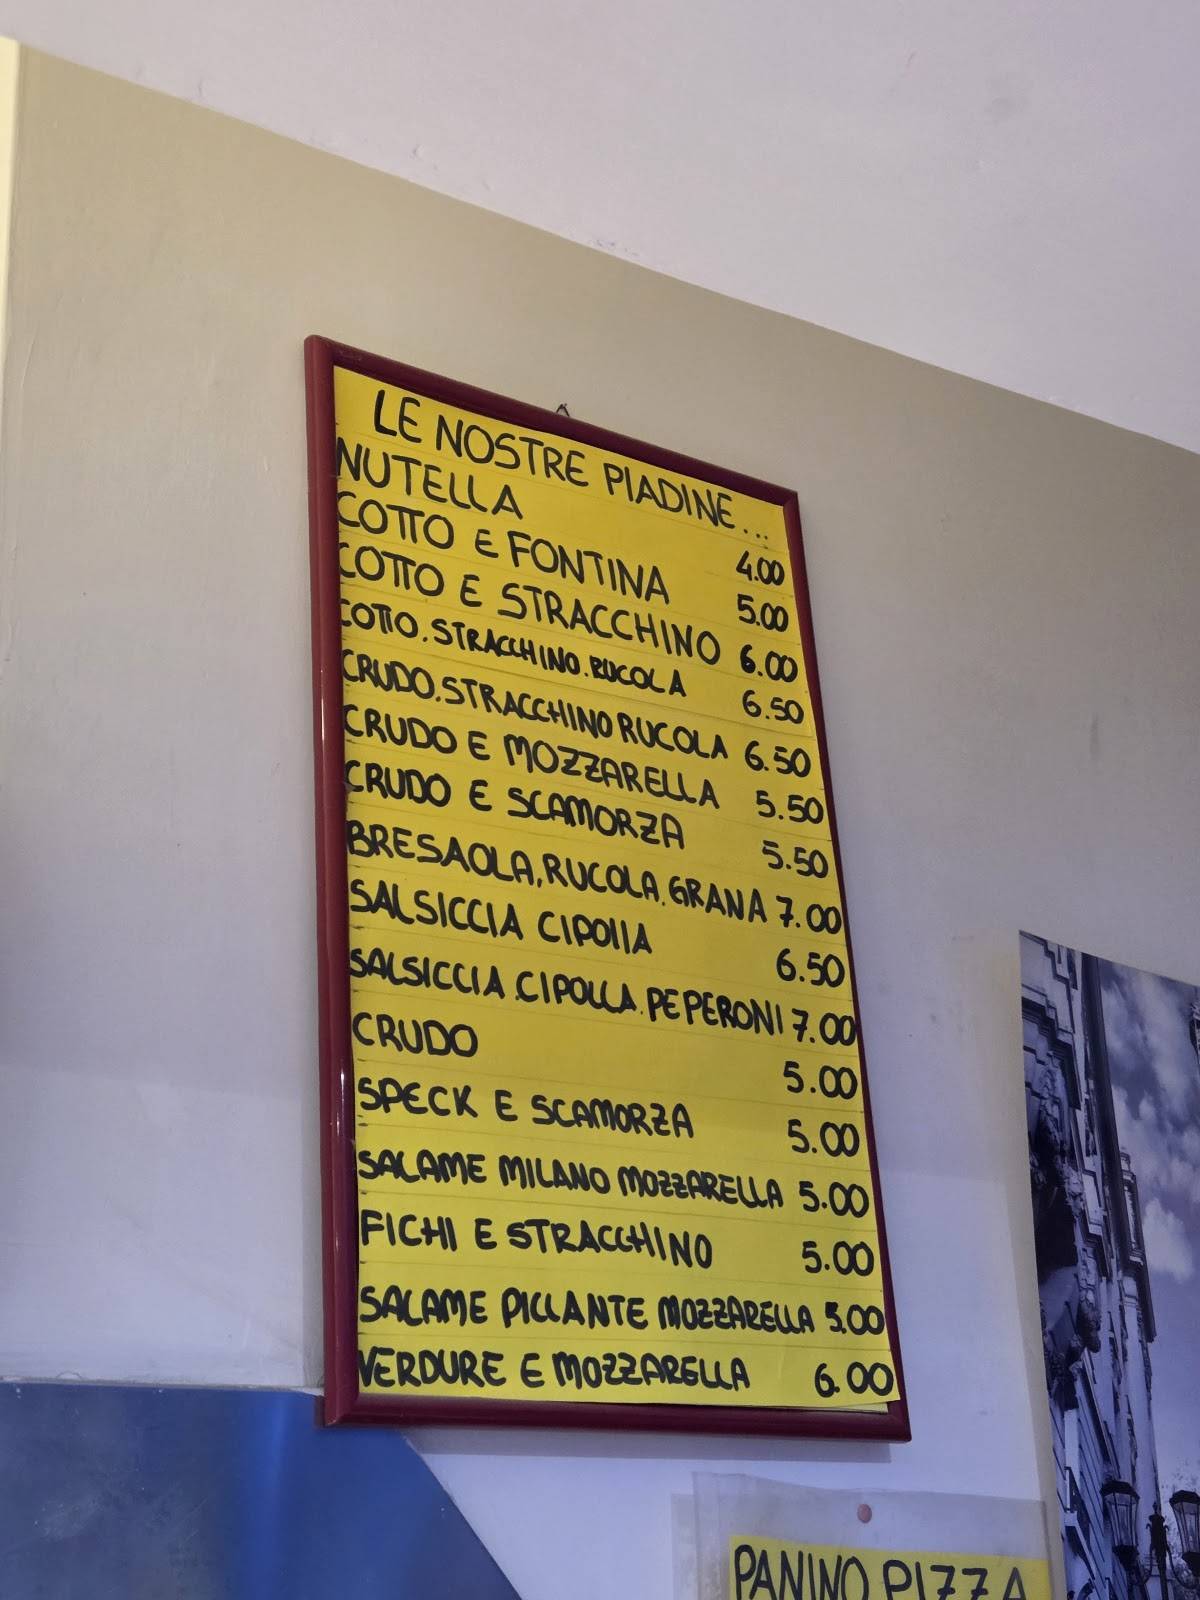 LE NOSTRE PIADINE...
NUTELLA 4.00
COTTO E FONTINA 5.00
COTTO E STRACCHINO 6.00
COTTO.STRACCHINO.RUCOLA 6.50
CRUDO.STRACCHINO RUCOLA 6.50
CRUDO E MOZZARELLA 5.50
CRUDO E SCAMORZA 5.50
BRESAOLA.RUCOLA.GRANA 7.00
SALSICCIA CIPOLLA 6.50
SALSICCIA.CIPOLLA.PEPERONI 7.00
CRUDO 5.00
SPECK E SCAMORZA 5.00
SALAME MILANO MOZZARELLA 5.00
FICHI E STRACCHINO 5.00
SALAME PICCANTE MOZZARELLA 5.00
VERDURE E MOZZARELLA 6.00
PANINO PIZZA